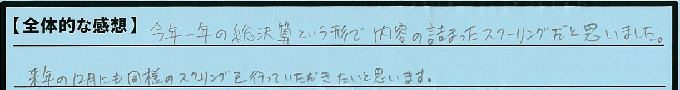 【全体的な感想】今年一年の総決算という形で内容の詰まったスクーリングだと思いました。
来年の12月にも同様のスクーリングを行っていただきたいと思います。